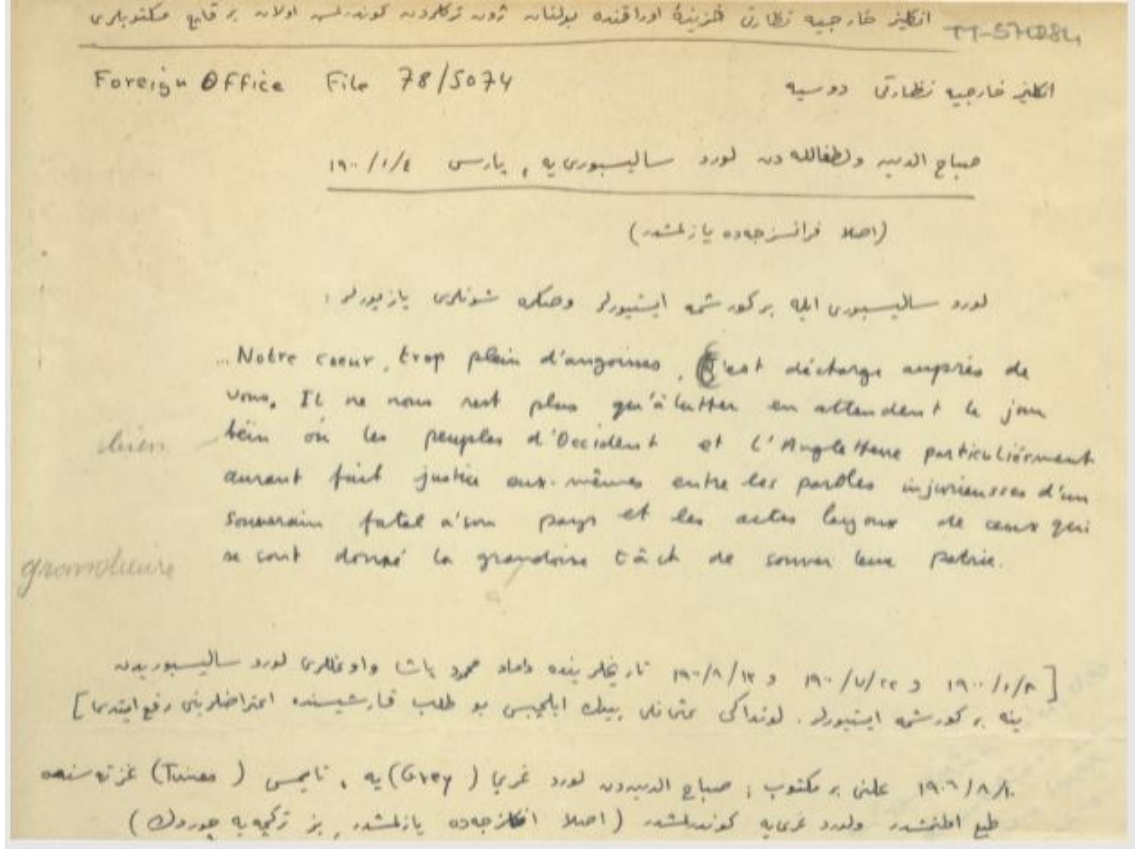 انگلیز خارجیه نظارتی خزینهٔ اوراقنده بولنان ژون ترکلردن کوندرلمش اولان بر قاچ مکتوبلری
TT-57028L
Foreign Office File 78/5074
انگلیز خارجیه نظارتی دوسیه
صباح الدین ولطف‌الله دن لورد سالیسبوری یه ، پارس ١٩٠٠/١/٤
(اصلا فرانسزجه‌ده یازلمشدر)
لورد سالیسبوری ایله بر کورشمه ایستیورلر وصکره شونلری یازیورلر :
... Notre coeur, trop plein d'angoines, s'est décharge auprès de
vous. Il ne nous rest plus qu'à lutter en attendent le jour
bein où les peuples d'Occident et l'Angletterre particuliérment
bien
aurant fait justice eux-mêmes entre les paroles injurieusses d'un
souverain fatal a'son pays et les actes loyoux de ceux qui
se sont donné la grandoise tâch de souver leur patrie.
grandieuse
[١٩٠٠/٤/٨ و ١٩٠٠/٧/٢٣ و ١٩٠٠/٨/١٣ تاریخلرینده داماد محمود پاشا واوغللری لورد سالیسبوریدن
ینه بر کورشمه ایستیورلر . لونداکی عثمانلی بیوك ایلچیسی بو طلب قارشیسنده اعتراضلرینی رفع ایتدی]
١٩٠٦/٨/١٠ علنی بر مکتوب ; صباح الدیندن لورد غریا (Grey) یه ، تایمس (Times) غزته سنده
طبع اولنمشدر ولورد غریه کوندرلمشدر (اصلا انگلزجه‌ده یازلمشدر بز ترکجه‌یه چوردك)